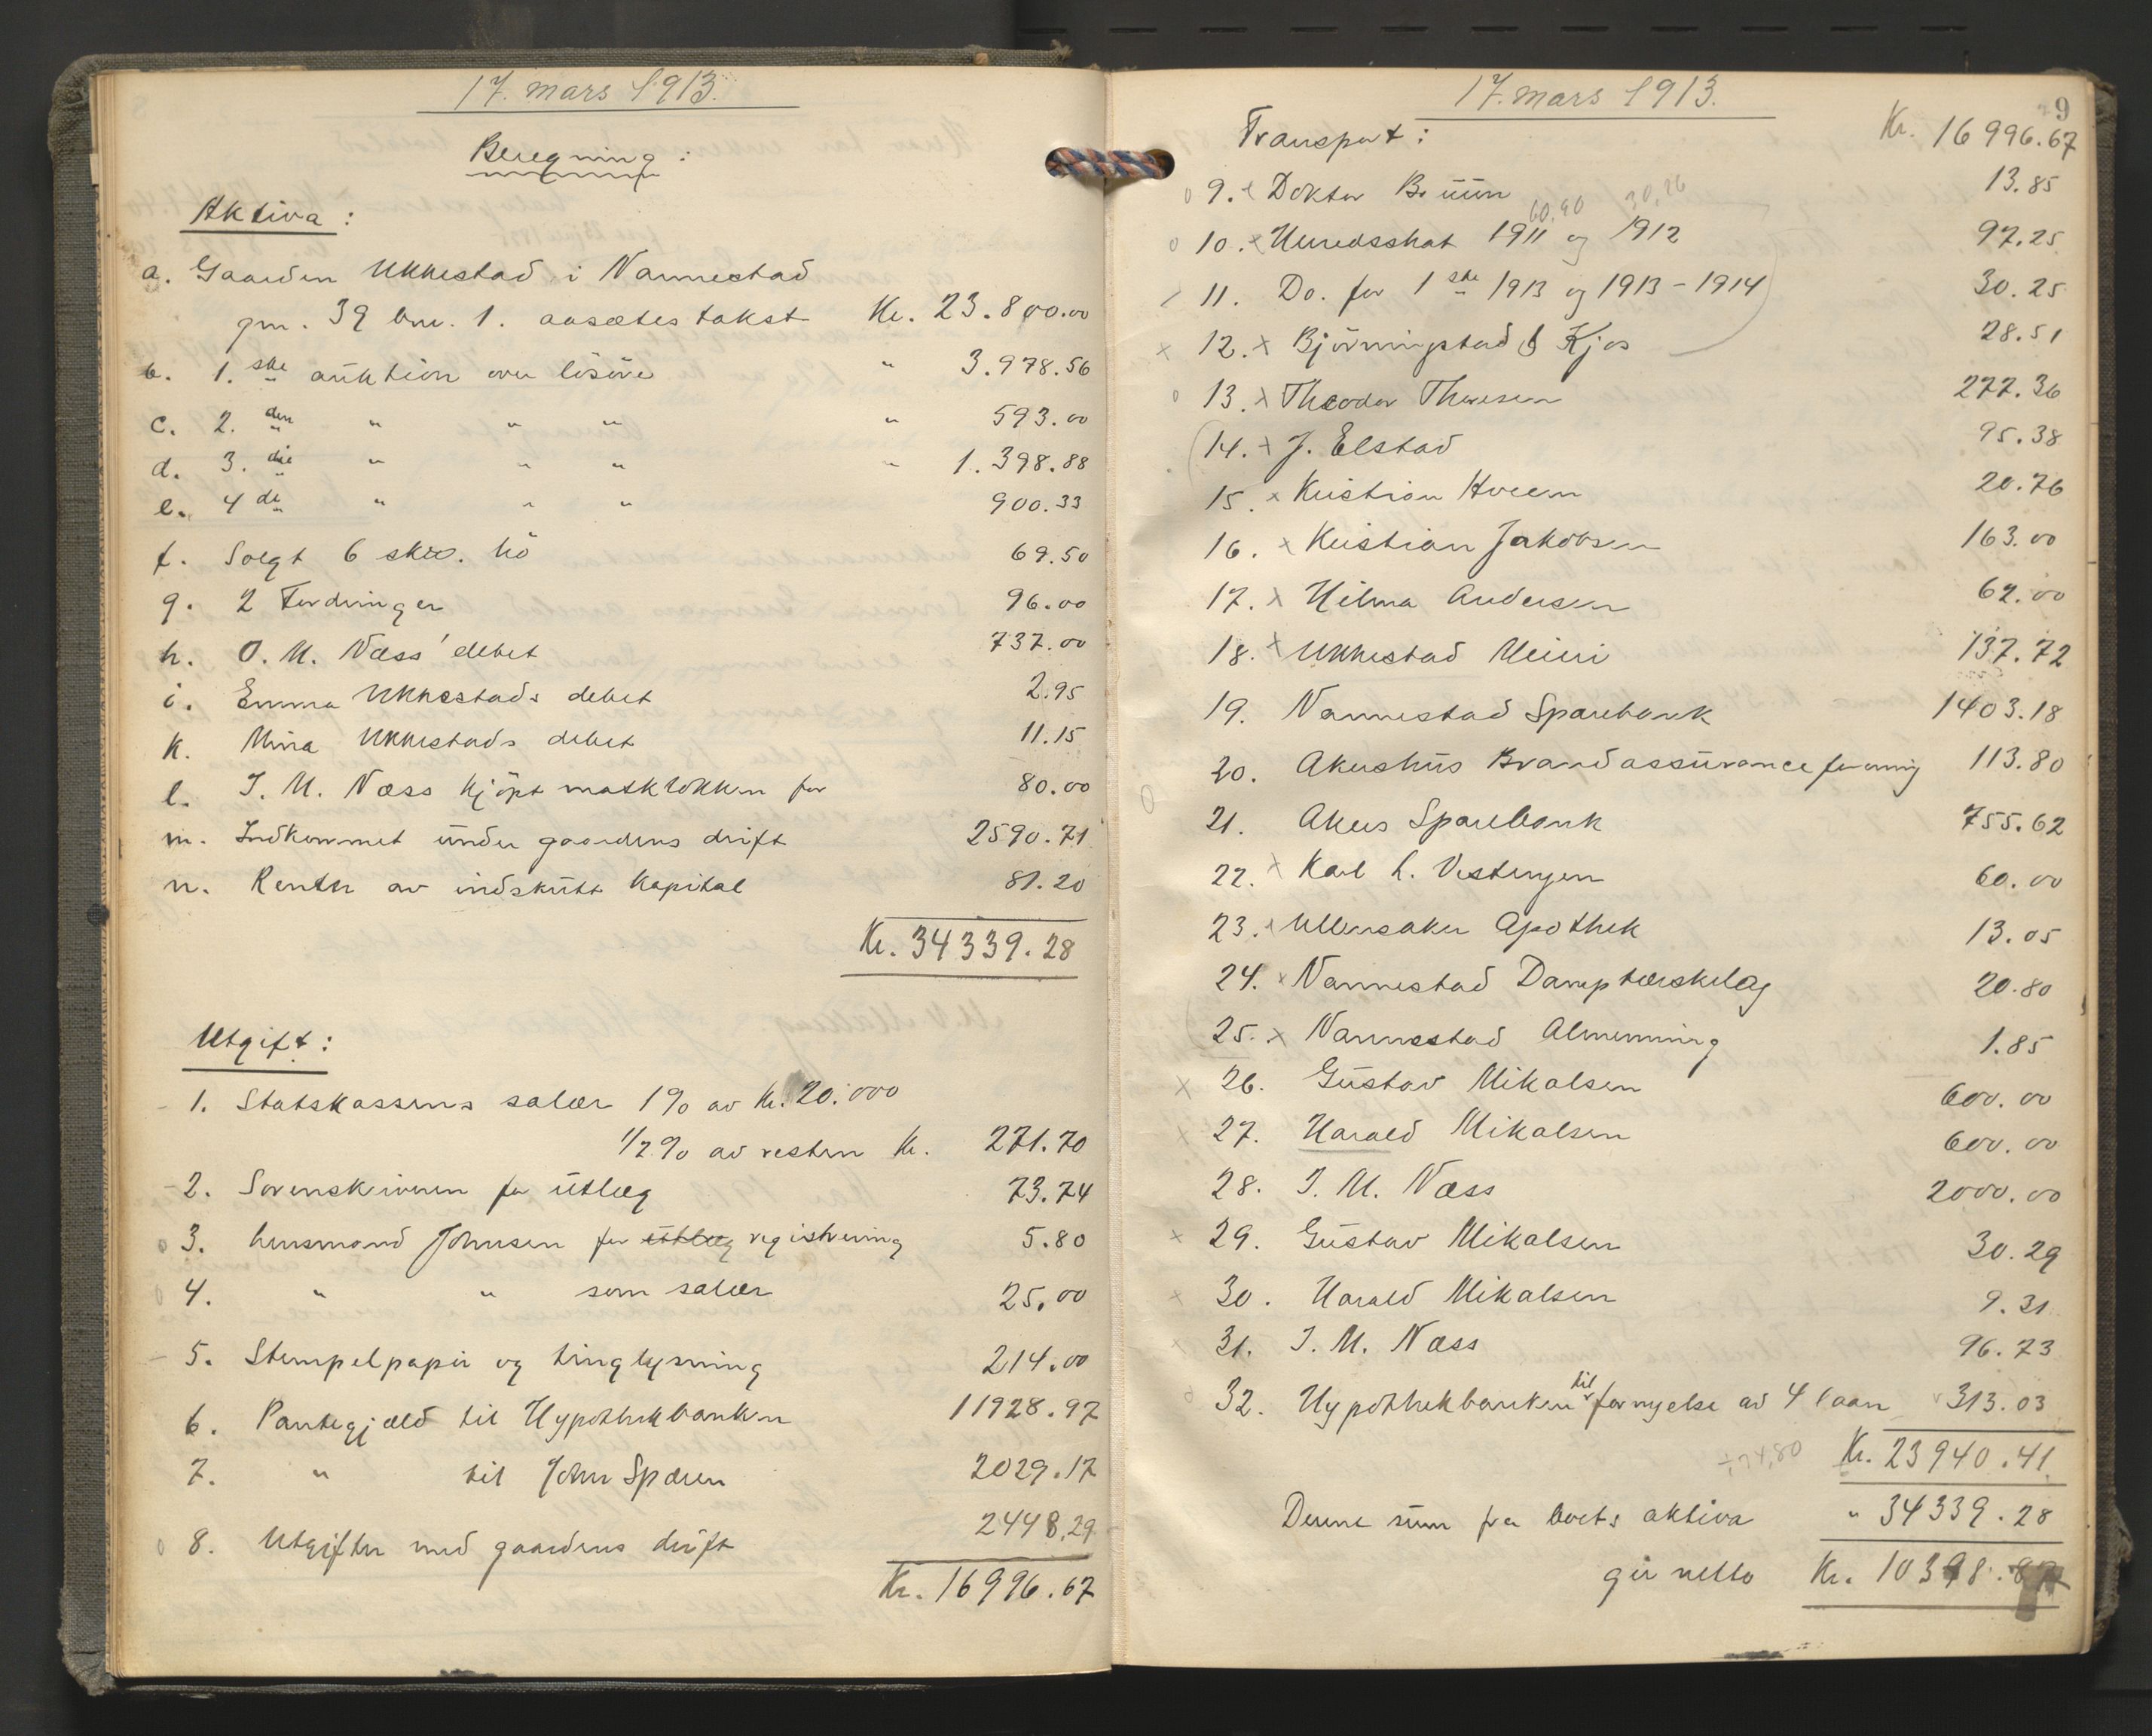 17. mars 1913.
Beregning:
Aktiva:
a. Gaarden Ukkestad i Nannestad
gnr. 39 bnr. 1. aasætestakst Kr. 23.800.00
b. 1.ste auktion over lösöre " 3.978.56
c. 2.den " " " " 593.00
d. 3.die " " " " 1.398.88
e. 4de " " " 900.33
f. Solgt 6 skp. hö 69.50
g. 2 Fordringer 96.00
h. O. M. Næss' debet 737.00
i. Emma Ukkestads debet 2.95
k. Mina Ukkestads debet 11.15
l. J. M. Næss kjöpt for 80.00
m. Indkommet under gaardens drift 2590.71
n. Renter av indskutt kapital 81.20
Kr. 34339.28
Utgift:
1. Statskassens salær 1% av Kr. 20.000
1/2% av resten Kr. 271.70
2. Sorenskriveren for utlæg 73.74
3. Lensmand Johnsen for utlæg registrering 5.80
4. " " som salær 25.00
5. Stempelpapir og tinglysning 214.00
6. Pantegjæld til Hypothekbanken 11928.97
7. " til John Spæren 2029.17
8. Utgifter med gaardens drift 2448.29
Kr. 16996.67
17. mars 1913.
9
Transport: Kr. 16996.67
9. Doktor Bruun 13.85
60,90 30,26
10. x Herredsskat 1911 og 1912 97.25
11. Do. for 1ste 1913 og 1913-1914 30.25
12. x Björningstad & Kjos 28.51
13. x Theodor Thoresen 277.36
14. x J. Elstad 95.38
15. x Kristian Hveem 20.76
16. x Kristian Jakobsen 163.00
17. x Hilma Andersen 62.00
18. x Ukkestad Meieri 137.72
19. Nannestad Sparebank 1403.18
20. Akershus Brandassuranceforening 113.80
21. Akers Sparebank 755.62
22. x Karl L. Vestengen 60.00
23. Ullensaker Apothek 13.05
24. x Nannestad Damptærskelag 20.80
25. x Nannestad Almenning 1.85
x 26. Gustav Mikalsen 600.00
x 27. Harald Mikalsen 600.00
28. J. M. Næss 2000.00
x 29. Gustav Mikalsen 30.29
x 30. Harald Mikalsen 9.31
x 31. J. M. Næss 96.73
32. Hypothekbanken til fornyelse av 4 laan 313.03
÷74,80 Kr. 23940.41
Denne sum fra boets aktiva " 34339.28
gir netto Kr. 10398.87